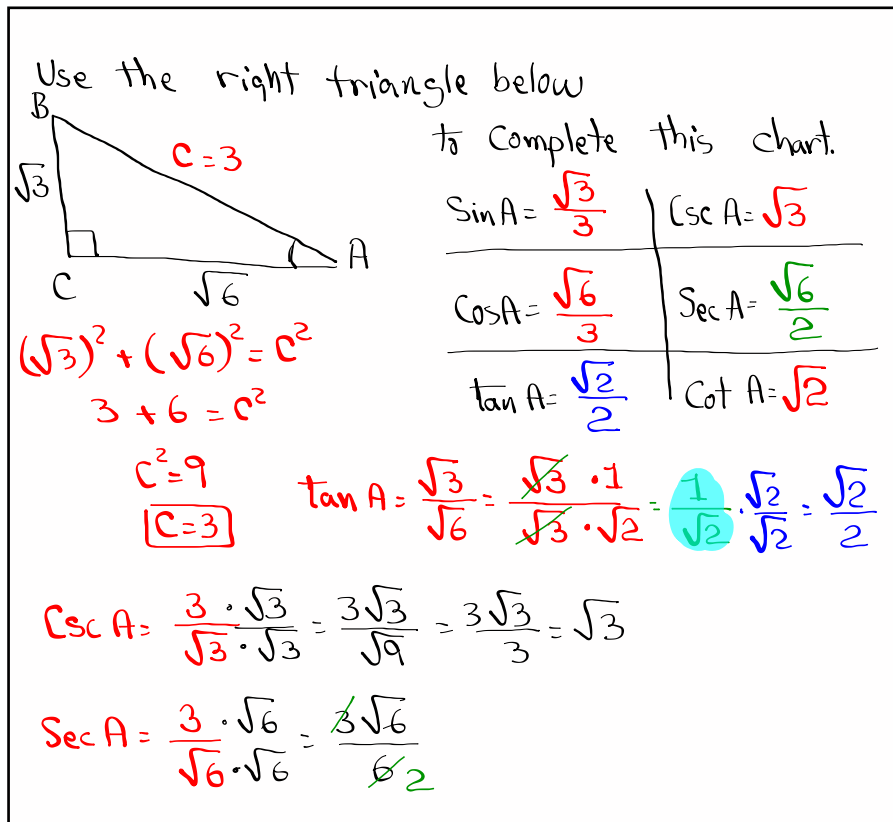 Use the right triangle below
to complete this chart.
B
√3
C = 3
C
√6
A
Sin A = √3/3
Csc A = √3
Cos A = √6/3
Sec A = √6/2
tan A = √2/2
Cot A = √2
(√3)² + (√6)² = C²
3 + 6 = C²
C² = 9
C = 3
tan A = √3/√6 = (√3 · 1)/(√3 · √2) = 1/√2 · √2/√2 = √2/2
Csc A = (3 · √3)/(√3 · √3) = 3√3/√9 = 3√3/3 = √3
Sec A = (3 · √6)/(√6 · √6) = 3√6/6 2